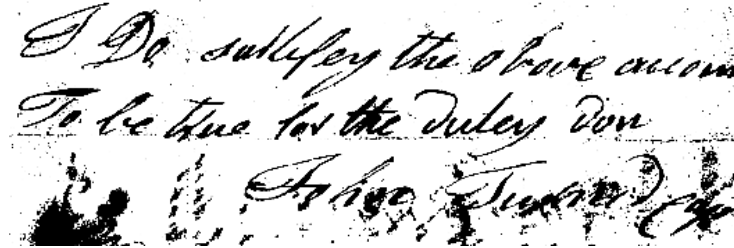 I Do sattefey the above accom
To be true for the dutey don
John Turner Cap